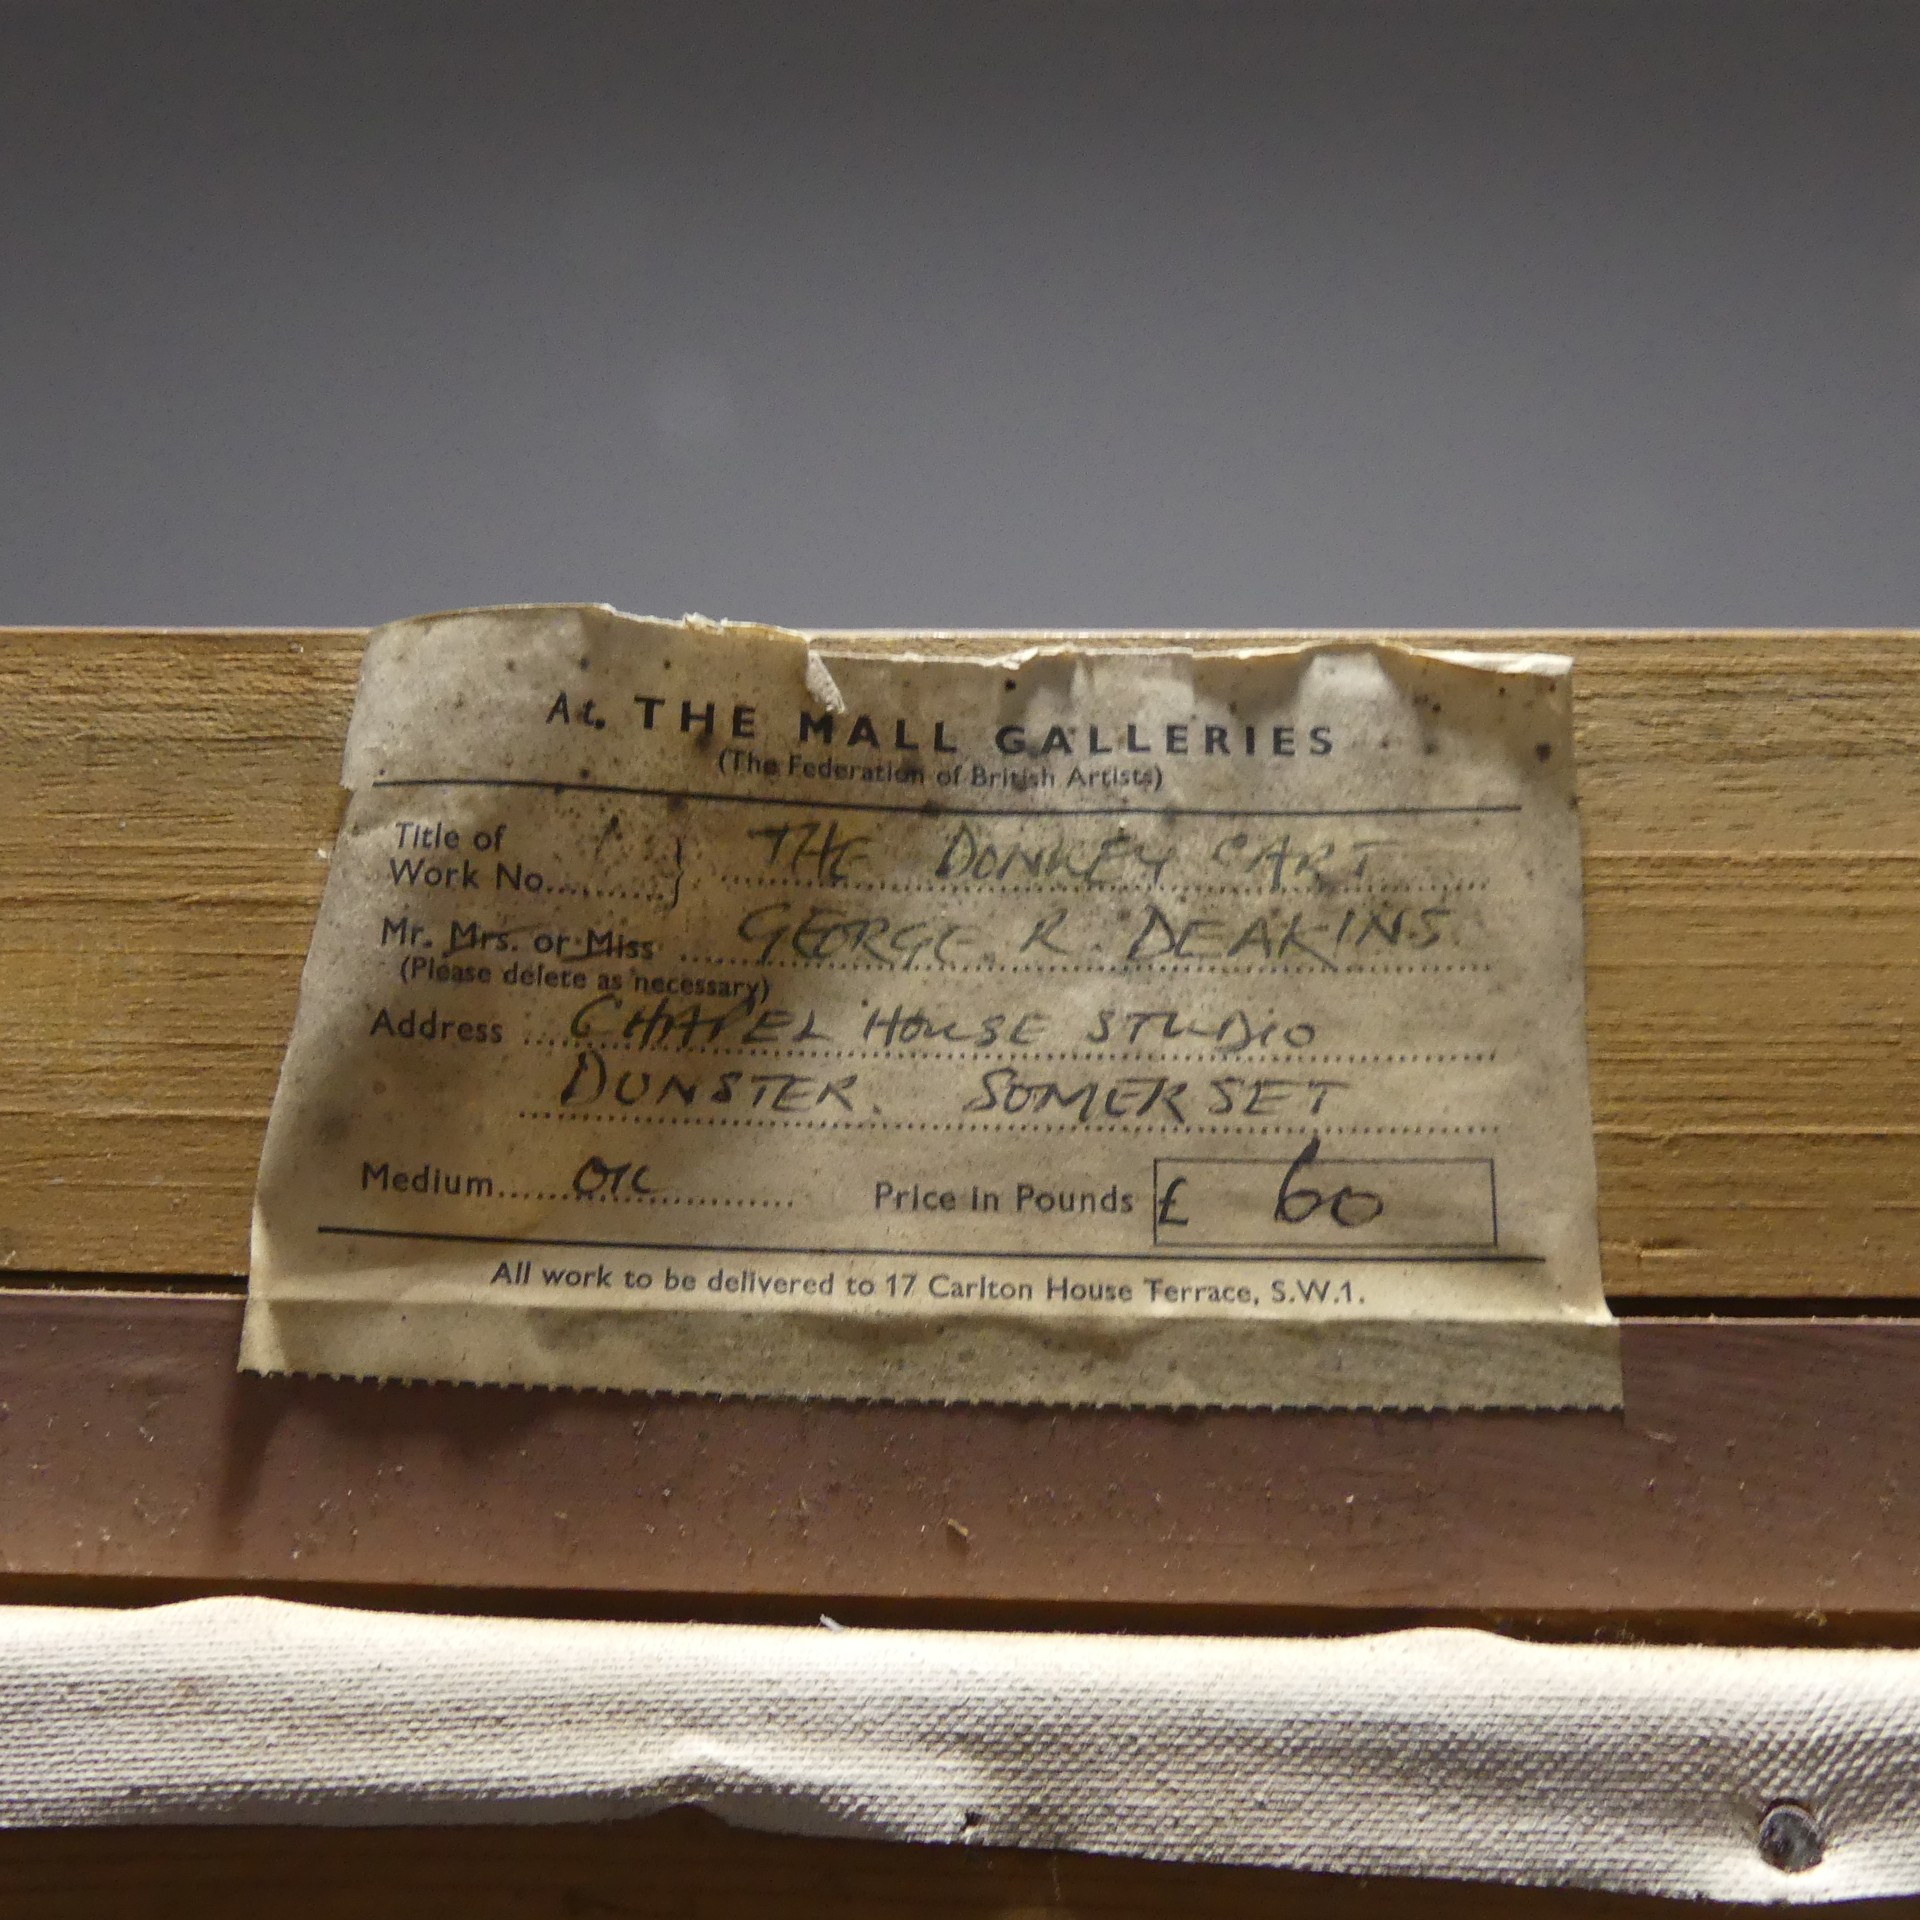 At. THE MALL GALLERIES
(The Federation of British Artists)
Title of
Work No. 1 } THE DONKEY CART
Mr. Mrs. or Miss GEORGE. R. DEAKINS
(Please delete as necessary)
Address CHAPEL HOUSE STUDIO
DUNSTER. SOMERSET
Medium OIL Price in Pounds £ 60
All work to be delivered to 17 Carlton House Terrace, S.W.1.